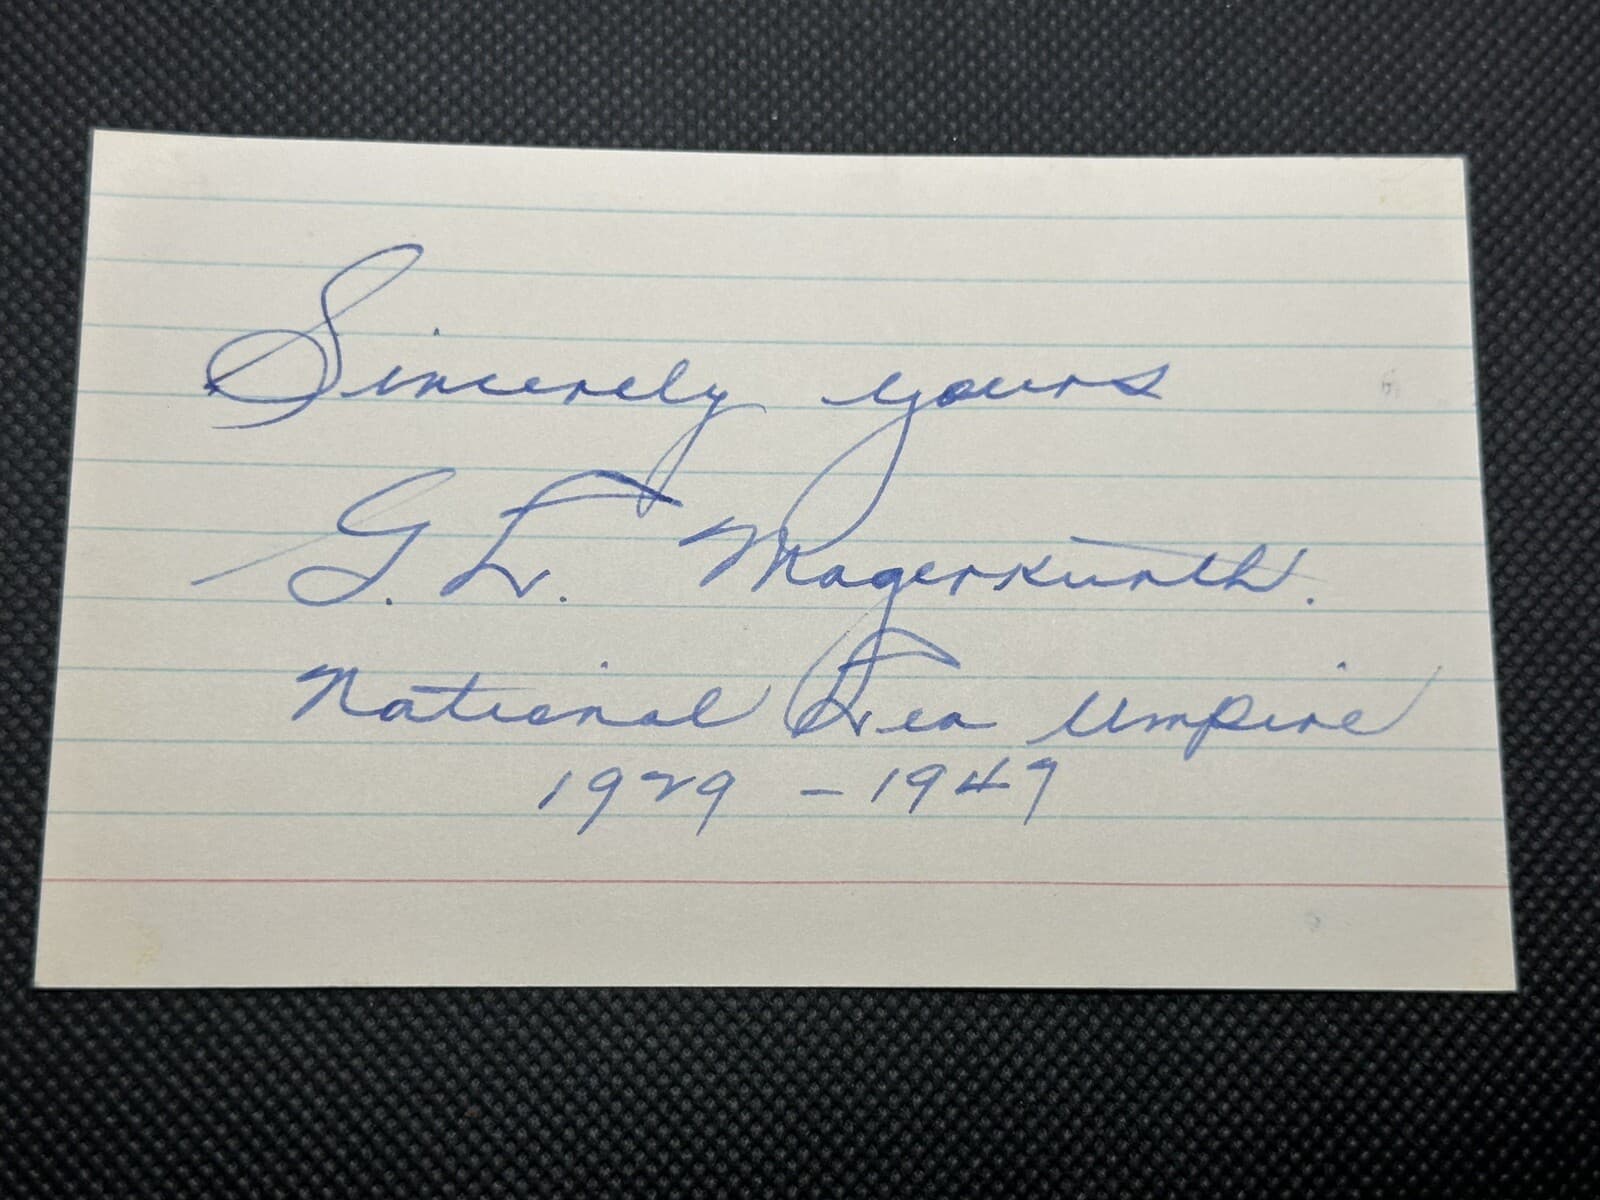 Sincerely yours
G. L. Magerkurth.
National Lea Umpire
1929 - 1947